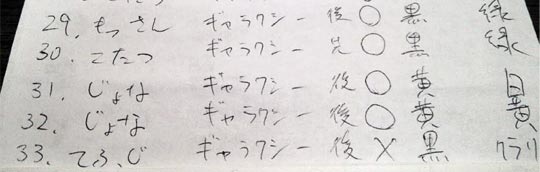 29. もっさん ギャラクシー 後 ○ 黒 緑
30. こたつ ギャラクシー 先 ○ 黒 緑
31. じょな ギャラクシー 後 ○ 黄 白黄
32. じょな ギャラクシー 後 ○ 黄 黄
33. てふじ ギャラクシー 後 × 黒 クラリ